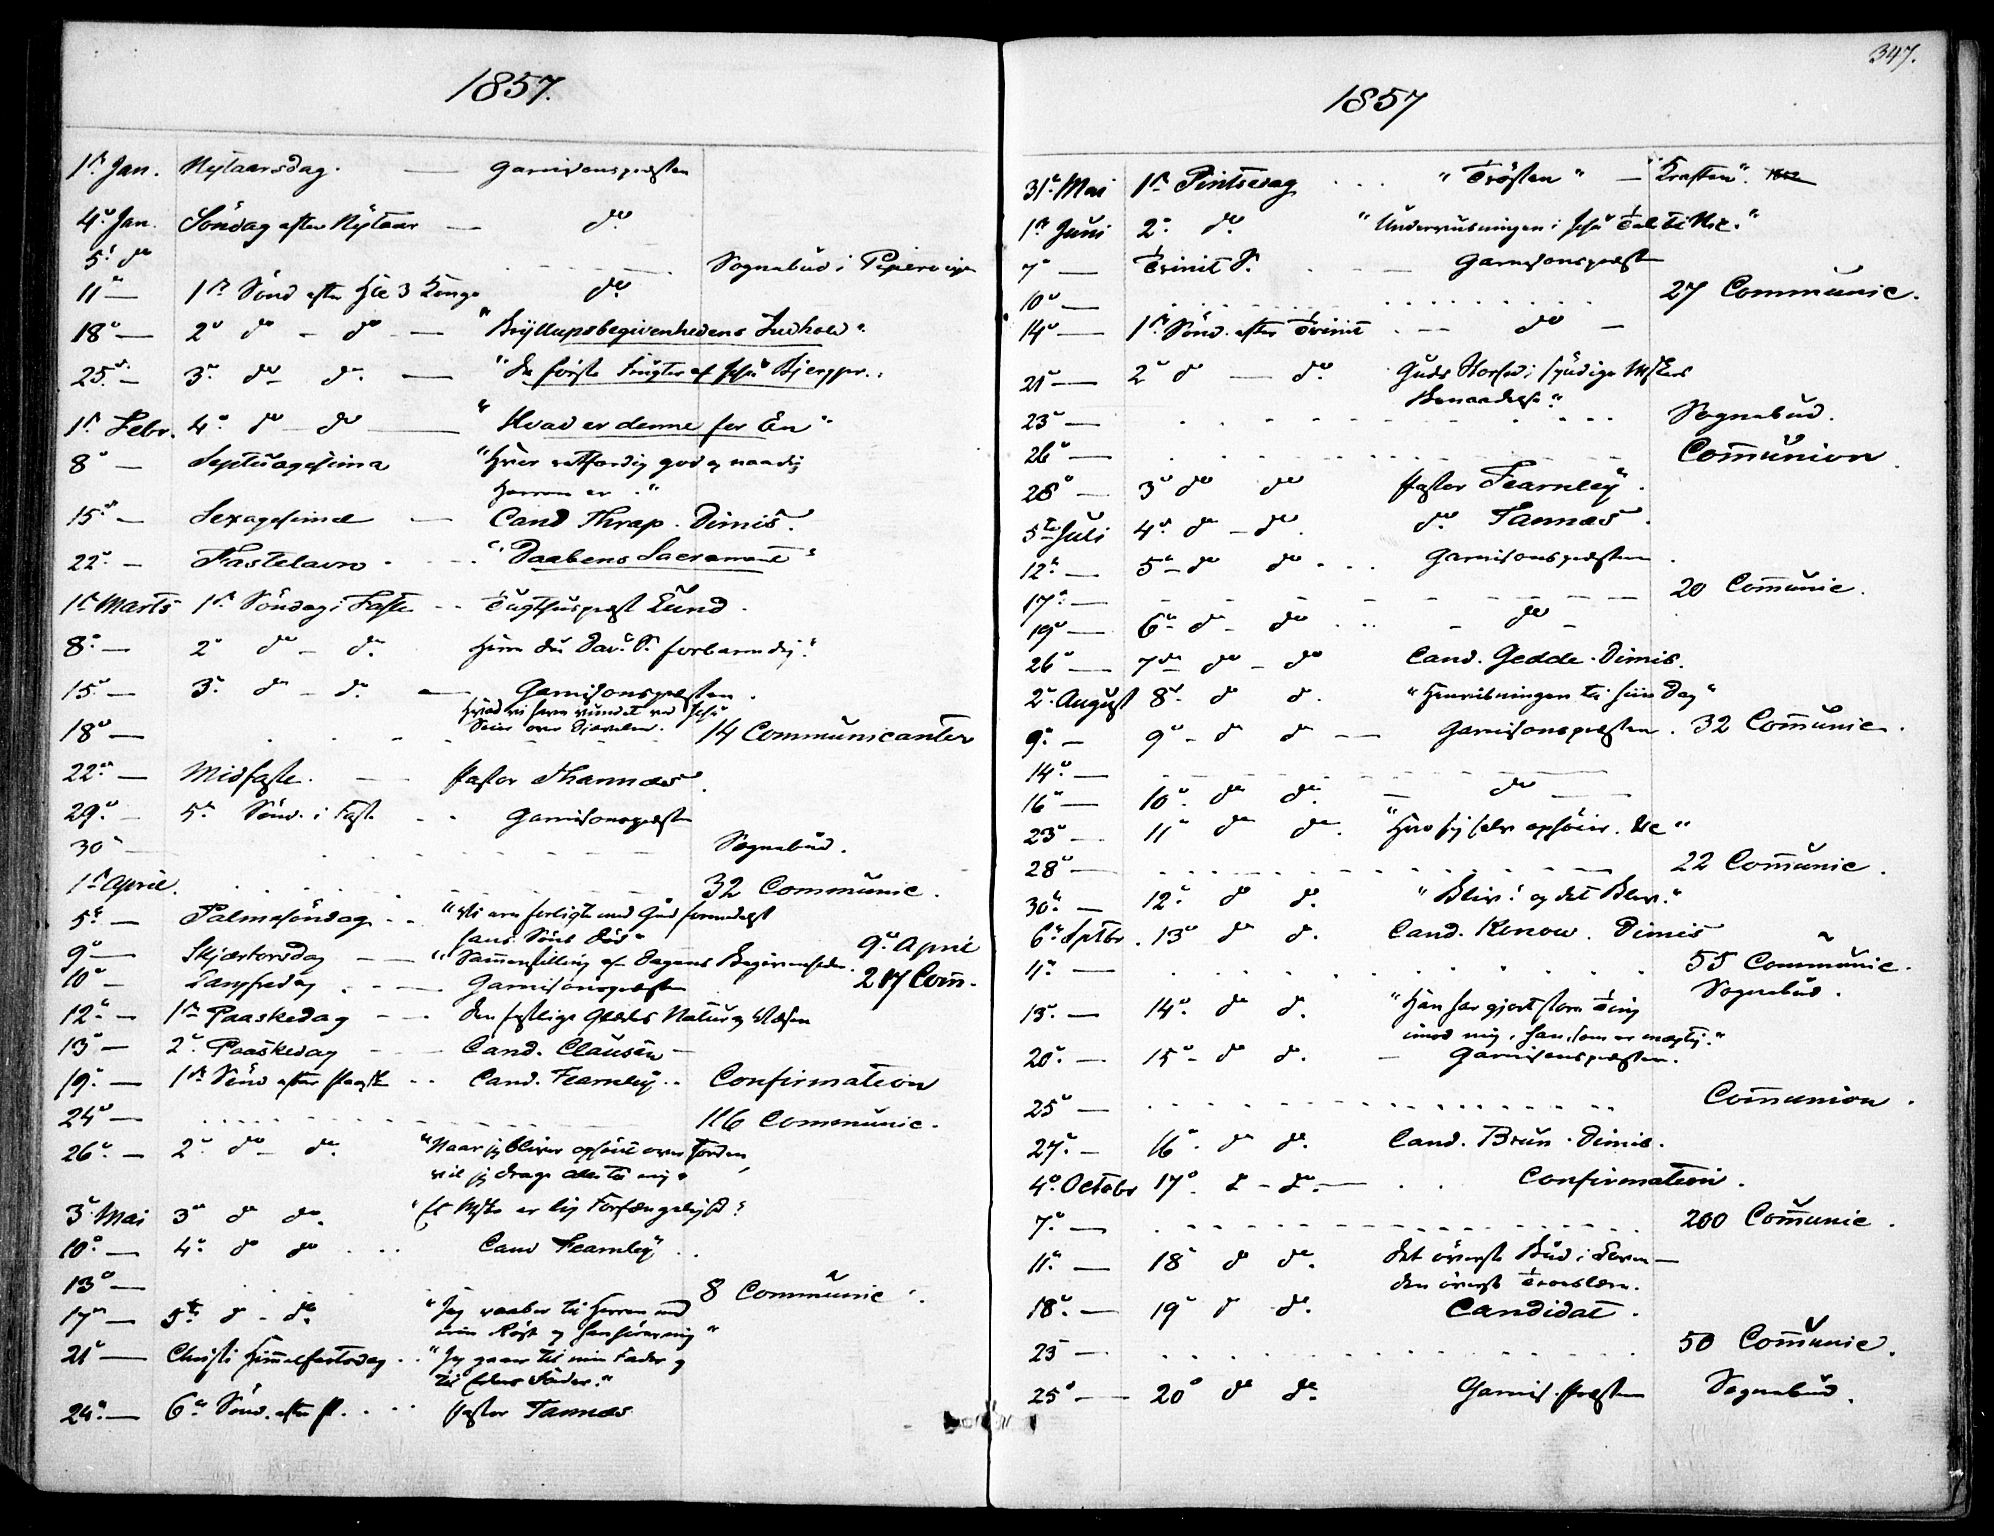 1857.
1st Jan. Nytaarsdag. — Garnisonspræsten
4de Jan. Söndag efter Nytaar — do
5te do Sognebud i Pipervigen
11te — 1ste Sönd efter Hle 3 Konge do
18de — 2de do - do — "Bryllupsbegivenhedens Indhold".
25de — 3die do - do. — "De förste Frugter af Jesu Bjergpr."
1ste Febr. 4de do - do — "Hvad er denne for En"
8de — Septuagesima "Hvor retfærdig god og naadig
Herren er."
15de — Sexagesima — Cand Thrap. Dimis.
22de — Fastelavn - "Daabens Sacrament"
1ste Marts 1ste Söndag i Faste - - Tugthuspræst Lund.
8de — 2de do - do. Herre du Davs S. forbarm dig."
15de — 3die do - do. — Garnisonspræsten.
Hvad vi have vundet ved Jesu
Seier over Djævelen.
18de — 14 Communicanter
22de — Midfaste. — Pastor Thannæs.
29de — 5te Sönd. i Faste - - Garnisonspræsten
30te — Sognebud.
1ste April. 32 Communic.
5te — Palmesöndag - - "Vi ere forligte med Gud formedelst
hans Söns Död"
9de — Skjærtorsdag — "Sammenstilling af Dagens Begivenheder. 9de April
10de — Langfredag - — Garnisonspræsten 217 Com.
12te — 1ste Paaskedag — Den festlige Glædes Natur og Væsen
13de — 2den Paaskedag — Cand. Clausen —
19de — 1ste Sönd efter Paaske - - Cand. Fearnley - - Confirmation
24de — 116 Communic.
26de — 2den do - do. "Naar jeg bliver ophöiet over Jorden,
vil jeg drage alle til mig"
3die Mai 3die do do. "Et Mske er lig Forfængelighed"
10de — 4de do do - - Cand Fearnley
13de — 8 Communic.
17de — 5te do - do. "Jeg raaber til Herren med
min Röst og han hörer mig"
21de — Christi Himmelfartsdag - - "Jeg gaaer til min Fader og
til Eders Fader."
24de — 6te Sönd. efter P. - - Pastor Tannæs
347.
1857
31te Mai 1ste Pintsedag - - - "Trösten" — "Kraften".
1ste Juni 2den do. "Underviisningen i Jesu Tale til Nic."
7de — Trinit S. - - — Garnisonspræsten
10de — 27 Communic.
14de — 1ste Sönd. efter Trinit - — do —
21de — 2den do — do. Guds Storhed i syndige Mskers
Benaadelse."
23de — Sognebud.
26de — Communion.
28de — 3die do do Pastor Fearnley.
5te Juli 4de do - do. do. Tannæs.
12te — 5te do do - - - Garnisonspræsten.
17de — 20 Comunic.
19de — 6te do - do - - - do -
26de — 7de do - do Cand. Gedde. Dimis.
2den August 8de do do. "Henviisningen til hiin Dag"
9de — 9de - do do — Garnisonspræsten. 32 Comunic.
14de —
16de — 10de do do. — do —
23de — 11te do do. "Hvo sig selv ophöier. &c"
28de — 22 Comunic.
30te — 12te do do. "Bliv! og det Blev."
6te Septbr. 13de do do. Cand. Konow. Dimis
11te — 55 Communic.
Sognebud.
13de — 14de do do. "Han har gjort store Ting
imod mig, han som er mægtig."
20de — 15de - do do. — Garnisonspræsten.
25de — Communion.
27de — 16de do do. Cand. Brun. Dimis.
4de Octobr 17de do - do. — - - Confirmation.
7de — 200 Comunic.
11te — 18de do do. Det överste Bud i Loven —
den överste Troeslære.
18de — 19de do do. Candidat.
23 — 50 Comunic.
25de — 20de do do. Garnis. Præsten Sognebud.